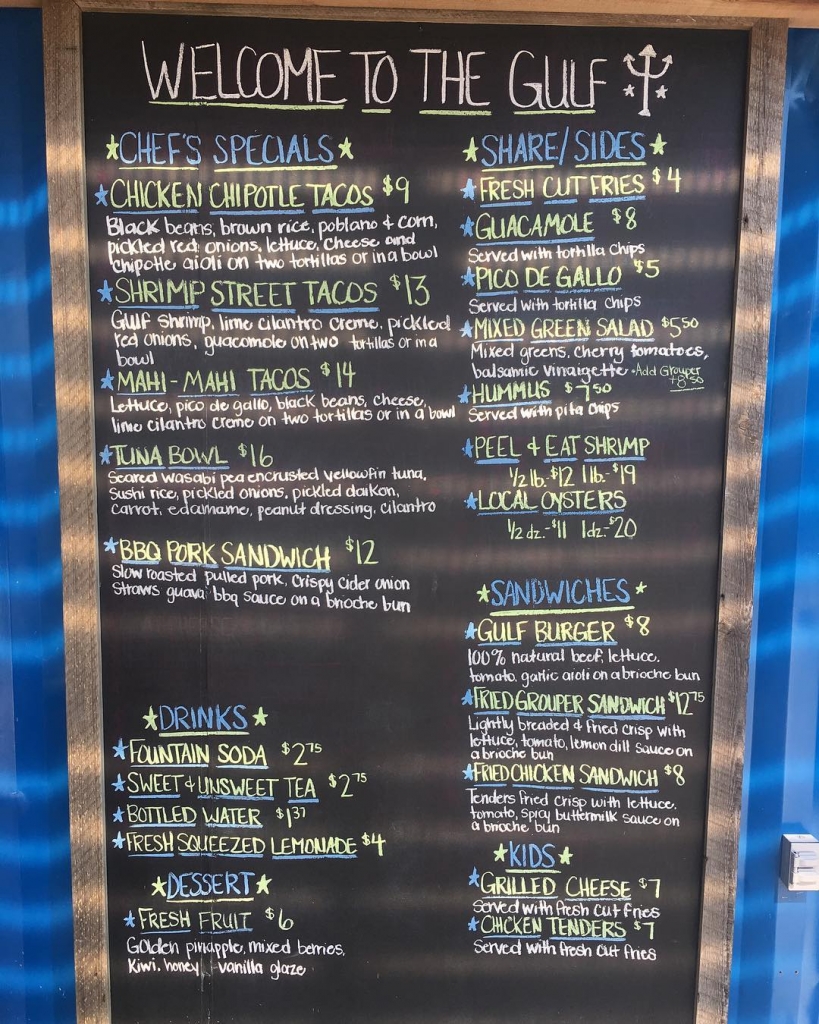 WELCOME TO THE GULF
CHEF'S SPECIALS
CHICKEN CHIPOTLE TACOS $9
Black beans, brown rice, poblano & corn,
pickled red onions, lettuce, cheese and
chipotle aioli on two tortillas or in a bowl
SHRIMP STREET TACOS $13
Gulf shrimp, lime cilantro creme, pickled
red onions, guacamole on two tortillas or in a
bowl
MAHI-MAHI TACOS $14
Lettuce, pico de gallo, black beans, cheese,
lime cilantro creme on two tortillas or in a bowl
TUNA BOWL $16
Seared wasabi pea encrusted yellowfin tuna,
Sushi rice, pickled onions, pickled daikon,
carrot, edamame, peanut dressing, cilantro
BBQ PORK SANDWICH $12
Slow roasted pulled pork, crispy cider onion
straws guava bbq sauce on a brioche bun
DRINKS
FOUNTAIN SODA $2.75
SWEET & UNSWEET TEA $2.75
BOTTLED WATER $1.37
FRESH SQUEEZED LEMONADE $4
DESSERT
FRESH FRUIT $6
Golden pineapple, mixed berries,
Kiwi, honey vanilla glaze
SHARE/SIDES
FRESH CUT FRIES $4
GUACAMOLE $8
Served with tortilla chips
PICO DE GALLO $5
Served with tortilla chips
MIXED GREEN SALAD $5.50
Mixed greens, cherry tomatoes,
balsamic vinaigette • Add Grouper
+8.50
HUMMUS $7.50
Served with pita chips
PEEL & EAT SHRIMP
1/2 lb.-$12 1 lb.-$19
LOCAL OYSTERS
1/2 dz.-$11 1dz-$20
SANDWICHES
GULF BURGER $8
100% natural beef, lettuce,
tomato, garlic aioli on a brioche bun
FRIED GROUPER SANDWICH $12.75
Lightly breaded & fried crisp with
lettuce, tomato, lemon dill sauce on
a brioche bun
FRIED CHICKEN SANDWICH $8
Tenders fried crisp with lettuce,
tomato, spicy buttermilk sauce on
a brioche bun
KIDS
GRILLED CHEESE $7
Served with fresh cut fries
CHICKEN TENDERS $7
Served with fresh cut fries